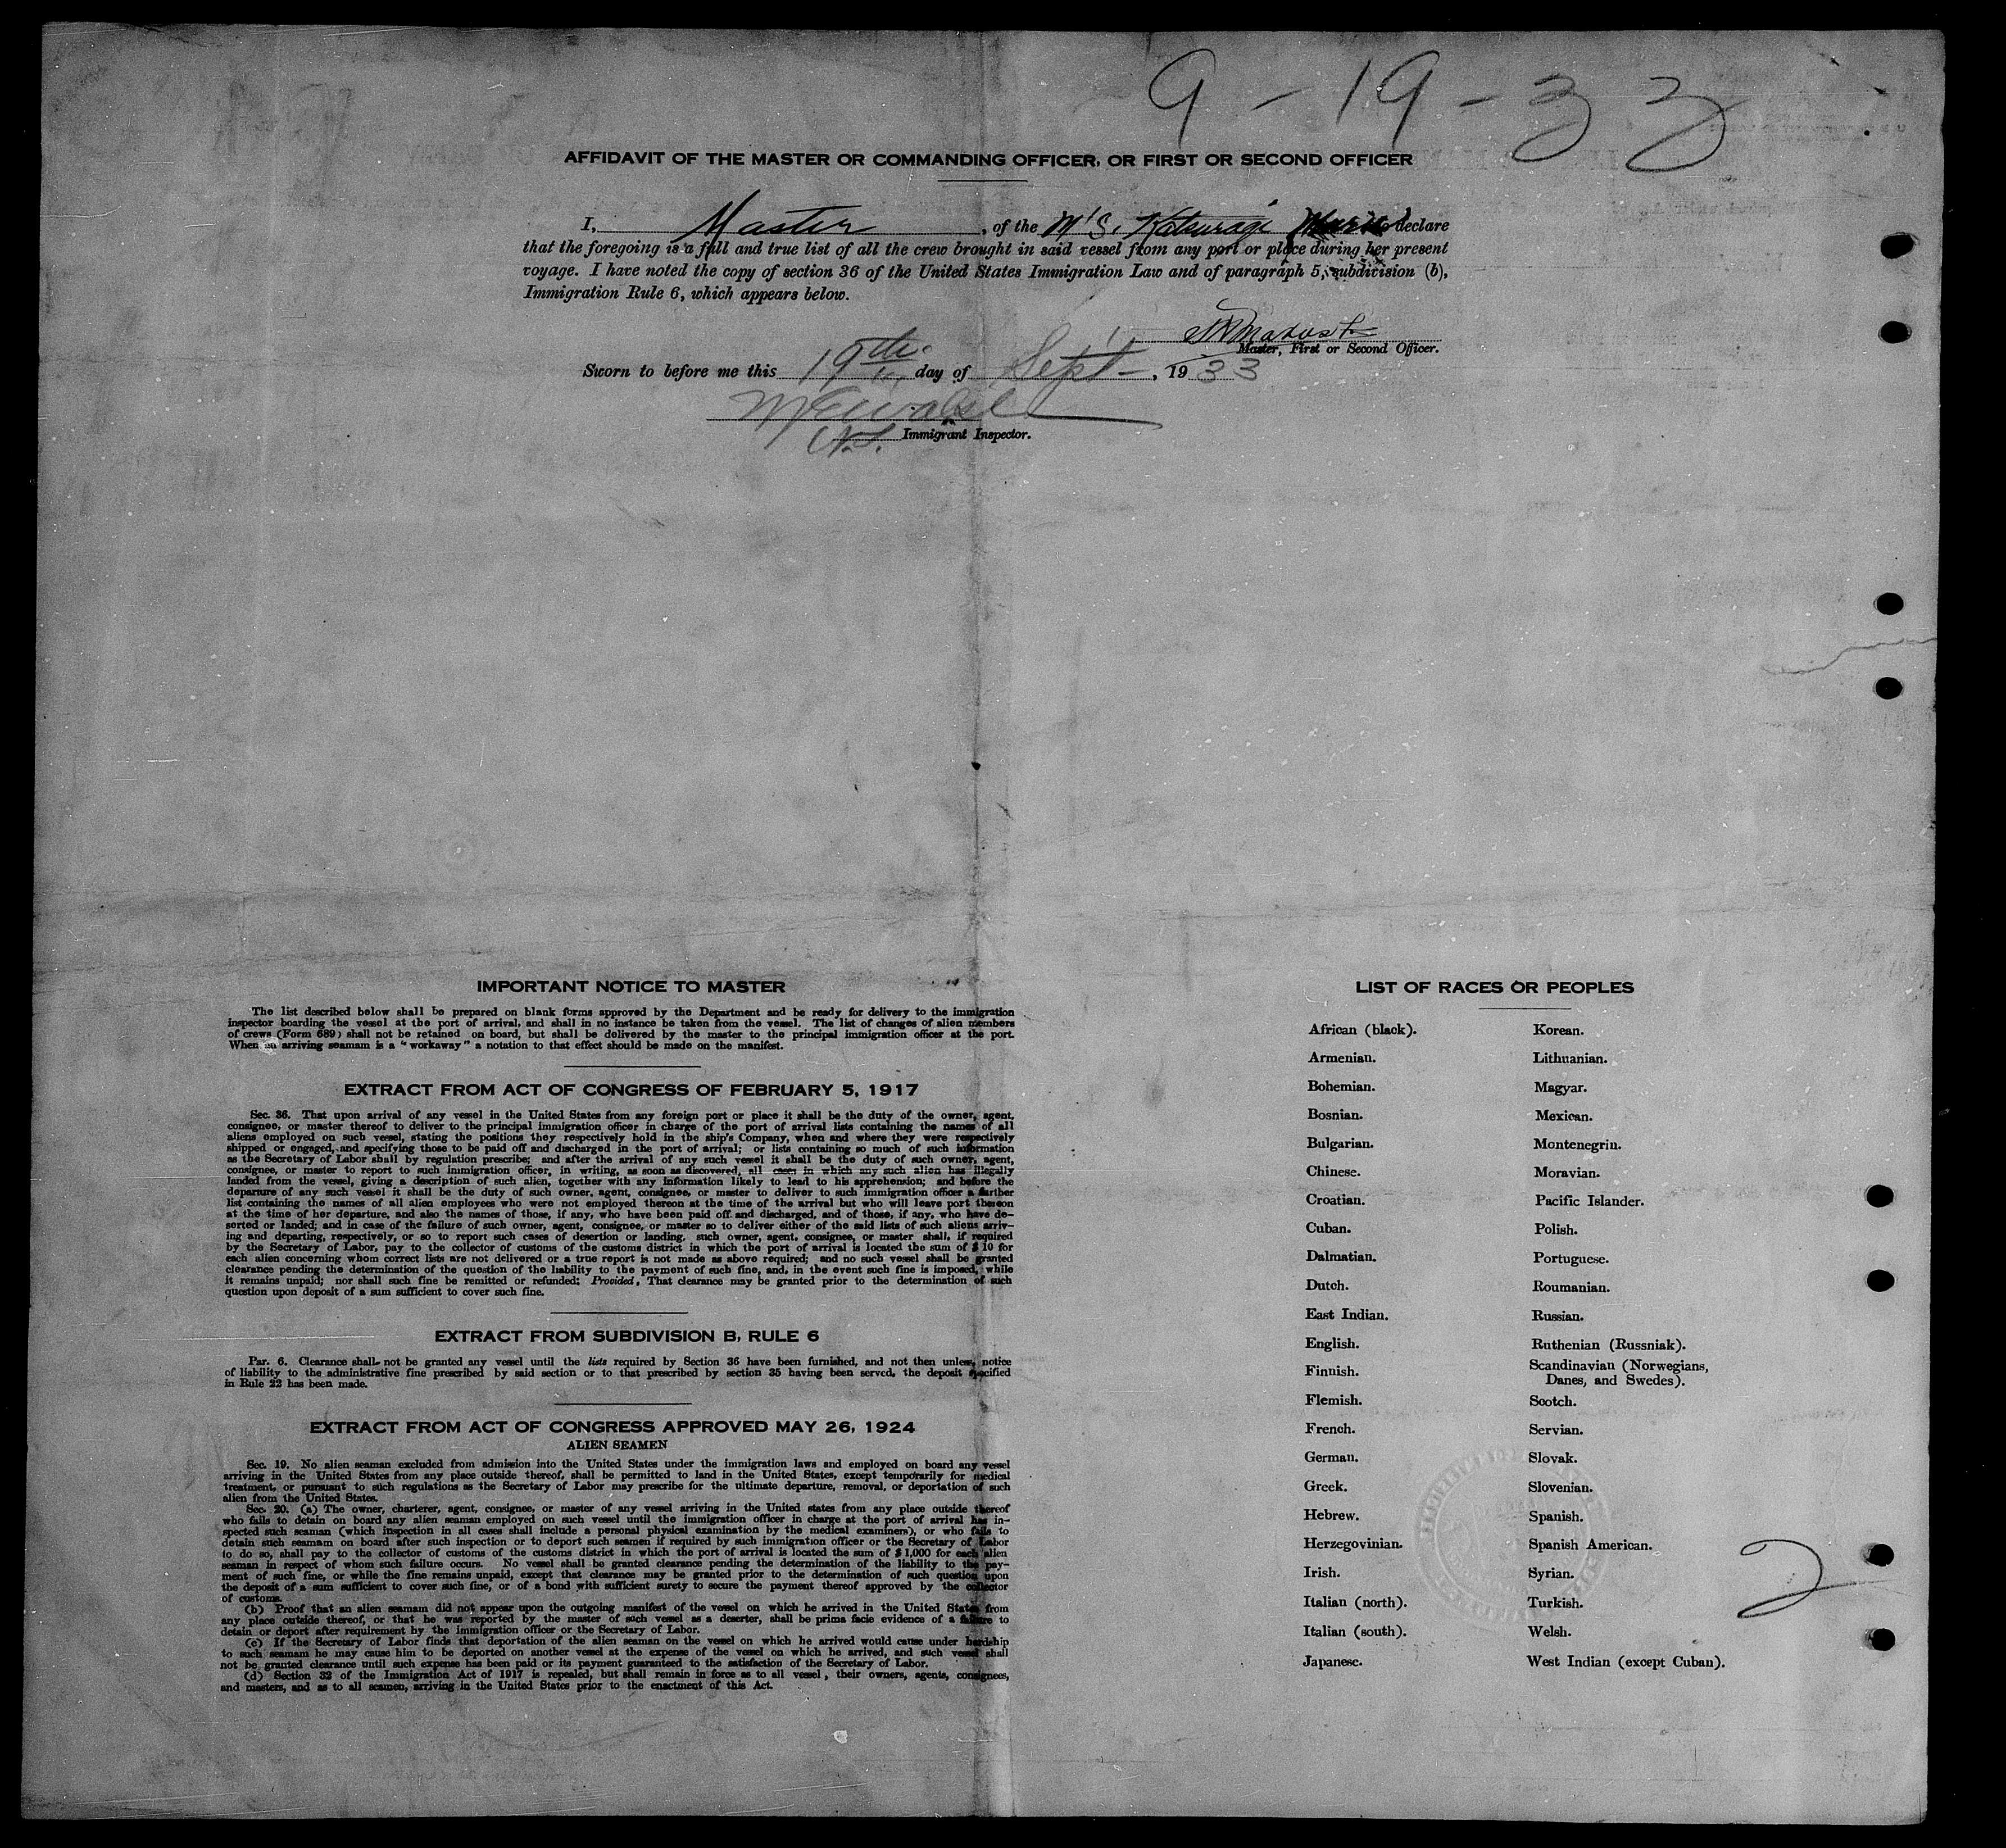 9 - 19 - 33
AFFIDAVIT OF THE MASTER OR COMMANDING OFFICER, OR FIRST OR SECOND OFFICER
I, Master, of the M/S. Katsuragi Maru declare
that the foregoing is a full and true list of all the crew brought in said vessel from any port or place during her present
voyage. I have noted the copy of section 36 of the United States Immigration Law and of paragraph 5, subdivision (b),
Immigration Rule 6, which appears below.
Master, First or Second Officer.
Sworn to before me this 19th day of Sept, 1933
Immigrant Inspector.
IMPORTANT NOTICE TO MASTER
The list described below shall be prepared on blank forms approved by the Department and be ready for delivery to the immigration
inspector boarding the vessel at the port of arrival, and shall in no instance be taken from the vessel. The list of changes of alien members
of crews (Form 689) shall not be retained on board, but shall be delivered by the master to the principal immigration officer at the port.
When an arriving seamam is a "workaway" a notation to that effect should be made on the manifest.
EXTRACT FROM ACT OF CONGRESS OF FEBRUARY 5, 1917
Sec. 36. That upon arrival of any vessel in the United States from any foreign port or place it shall be the duty of the owner, agent,
consignee, or master thereof to deliver to the principal immigration officer in charge of the port of arrival lists containing the names of all
aliens employed on such vessel, stating the positions they respectively hold in the ship's Company, when and where they were respectively
shipped or engaged, and specifying those to be paid off and discharged in the port of arrival; or lists containing so much of such information
as the Secretary of Labor shall by regulation prescribe; and after the arrival of any such vessel it shall be the duty of such owner, agent,
consignee, or master to report to such immigration officer, in writing, as soon as discovered, all cases in which any such alien has illegally
landed from the vessel, giving a description of such alien, together with any information likely to lead to his apprehension; and before the
departure of any such vessel it shall be the duty of such owner, agent, consignee, or master to deliver to such immigration officer a further
list containing the names of all alien employees who were not employed thereon at the time of the arrival but who will leave port thereon
at the time of her departure, and also the names of those, if any, who have been paid off and discharged, and of those, if any, who have de-
serted or landed; and in case of the failure of such owner, agent, consignee, or master so to deliver either of the said lists of such aliens arriv-
ing and departing, respectively, or so to report such cases of desertion or landing, such owner, agent, consignee, or master shall, if required
by the Secretary of Labor, pay to the collector of customs of the customs district in which the port of arrival is located the sum of $ 10 for
each alien concerning whom correct lists are not delivered or a true report is not made as above required; and no such vessel shall be granted
clearance pending the determination of the question of the liability to the payment of such fine, and, in the event such fine is imposed, while
it remains unpaid; nor shall such fine be remitted or refunded; Provided, That clearance may be granted prior to the determination of such
question upon deposit of a sum sufficient to cover such fine.
EXTRACT FROM SUBDIVISION B, RULE 6
Par. 6. Clearance shall not be granted any vessel until the lists required by Section 36 have been furnished, and not then unless, notice
of liability to the administrative fine prescribed by said section or to that prescribed by section 35 having been served, the deposit specified
in Rule 22 has been made.
EXTRACT FROM ACT OF CONGRESS APPROVED MAY 26, 1924
ALIEN SEAMEN
Sec. 19. No alien seaman excluded from admission into the United States under the immigration laws and employed on board any vessel
arriving in the United States from any place outside thereof, shall be permitted to land in the United States, except temporarily for medical
treatment, or pursuant to such regulations as the Secretary of Labor may prescribe for the ultimate departure, removal, or deportation of such
alien from the United States.
Sec. 20. (a) The owner, charterer, agent, consignee, or master of any vessel arriving in the United states from any place outside thereof
who fails to detain on board any alien seaman employed on such vessel until the immigration officer in charge at the port of arrival has in-
spected such seaman (which inspection in all cases shall include a personal physical examination by the medical examiners), or who fails to
detain such seamam on board after such inspection or to deport such seamen if required by such immigration officer or the Secretary of Labor
to do so, shall pay to the collector of customs of the customs district in which the port of arrival is located the sum of $ 1,000 for each alien
seaman in respect of whom such failure occurs. No vessel shall be granted clearance pending the determination of the liability to the pay-
ment of such fine, or while the fine remains unpaid, except that clearance may be granted prior to the determination of such question upon
the deposit of a sum sufficient to cover such fine, or of a bond with sufficient surety to secure the payment thereof approved by the collector
of customs.
(b) Proof that an alien seamam did not appear upon the outgoing manifest of the vessel on which he arrived in the United States from
any place outside thereof, or that he was reported by the master of such vessel as a deserter, shall be prima facie evidence of a failure to
detain or deport after requirement by the immigration officer or the Secretary of Labor.
(c) If the Secretary of Labor finds that deportation of the alien seaman on the vessel on which he arrived would cause under hardship
to such seamam he may cause him to be deported on another vessel at the expense of the vessel on which he arrived, and such vessel shall
not be granted clearance until such expense has been paid or its payment guaranteed to the satisfaction of the Secretary of Labor.
(d) Section 32 of the Immigration Act of 1917 is repealed, but shall remain in force as to all vessel, their owners, agents, consignees,
and masters, and as to all seamen, arriving in the United States prior to the enactment of this Act.
LIST OF RACES OR PEOPLES
African (black).
Armenian.
Bohemian.
Bosnian.
Bulgarian.
Chinese.
Croatian.
Cuban.
Dalmatian.
Dutch.
East Indian.
English.
Finnish.
Flemish.
French.
German.
Greek.
Hebrew.
Herzegovinian.
Irish.
Italian (north).
Italian (south).
Japanese.
Korean.
Lithuanian.
Magyar.
Mexican.
Montenegrin.
Moravian.
Pacific Islander.
Polish.
Portuguese.
Roumanian.
Russian.
Ruthenian (Russniak).
Scandinavian (Norwegians,
Danes, and Swedes).
Scotch.
Servian.
Slovak.
Slovenian.
Spanish.
Spanish American.
Syrian.
Turkish.
Welsh.
West Indian (except Cuban).
2